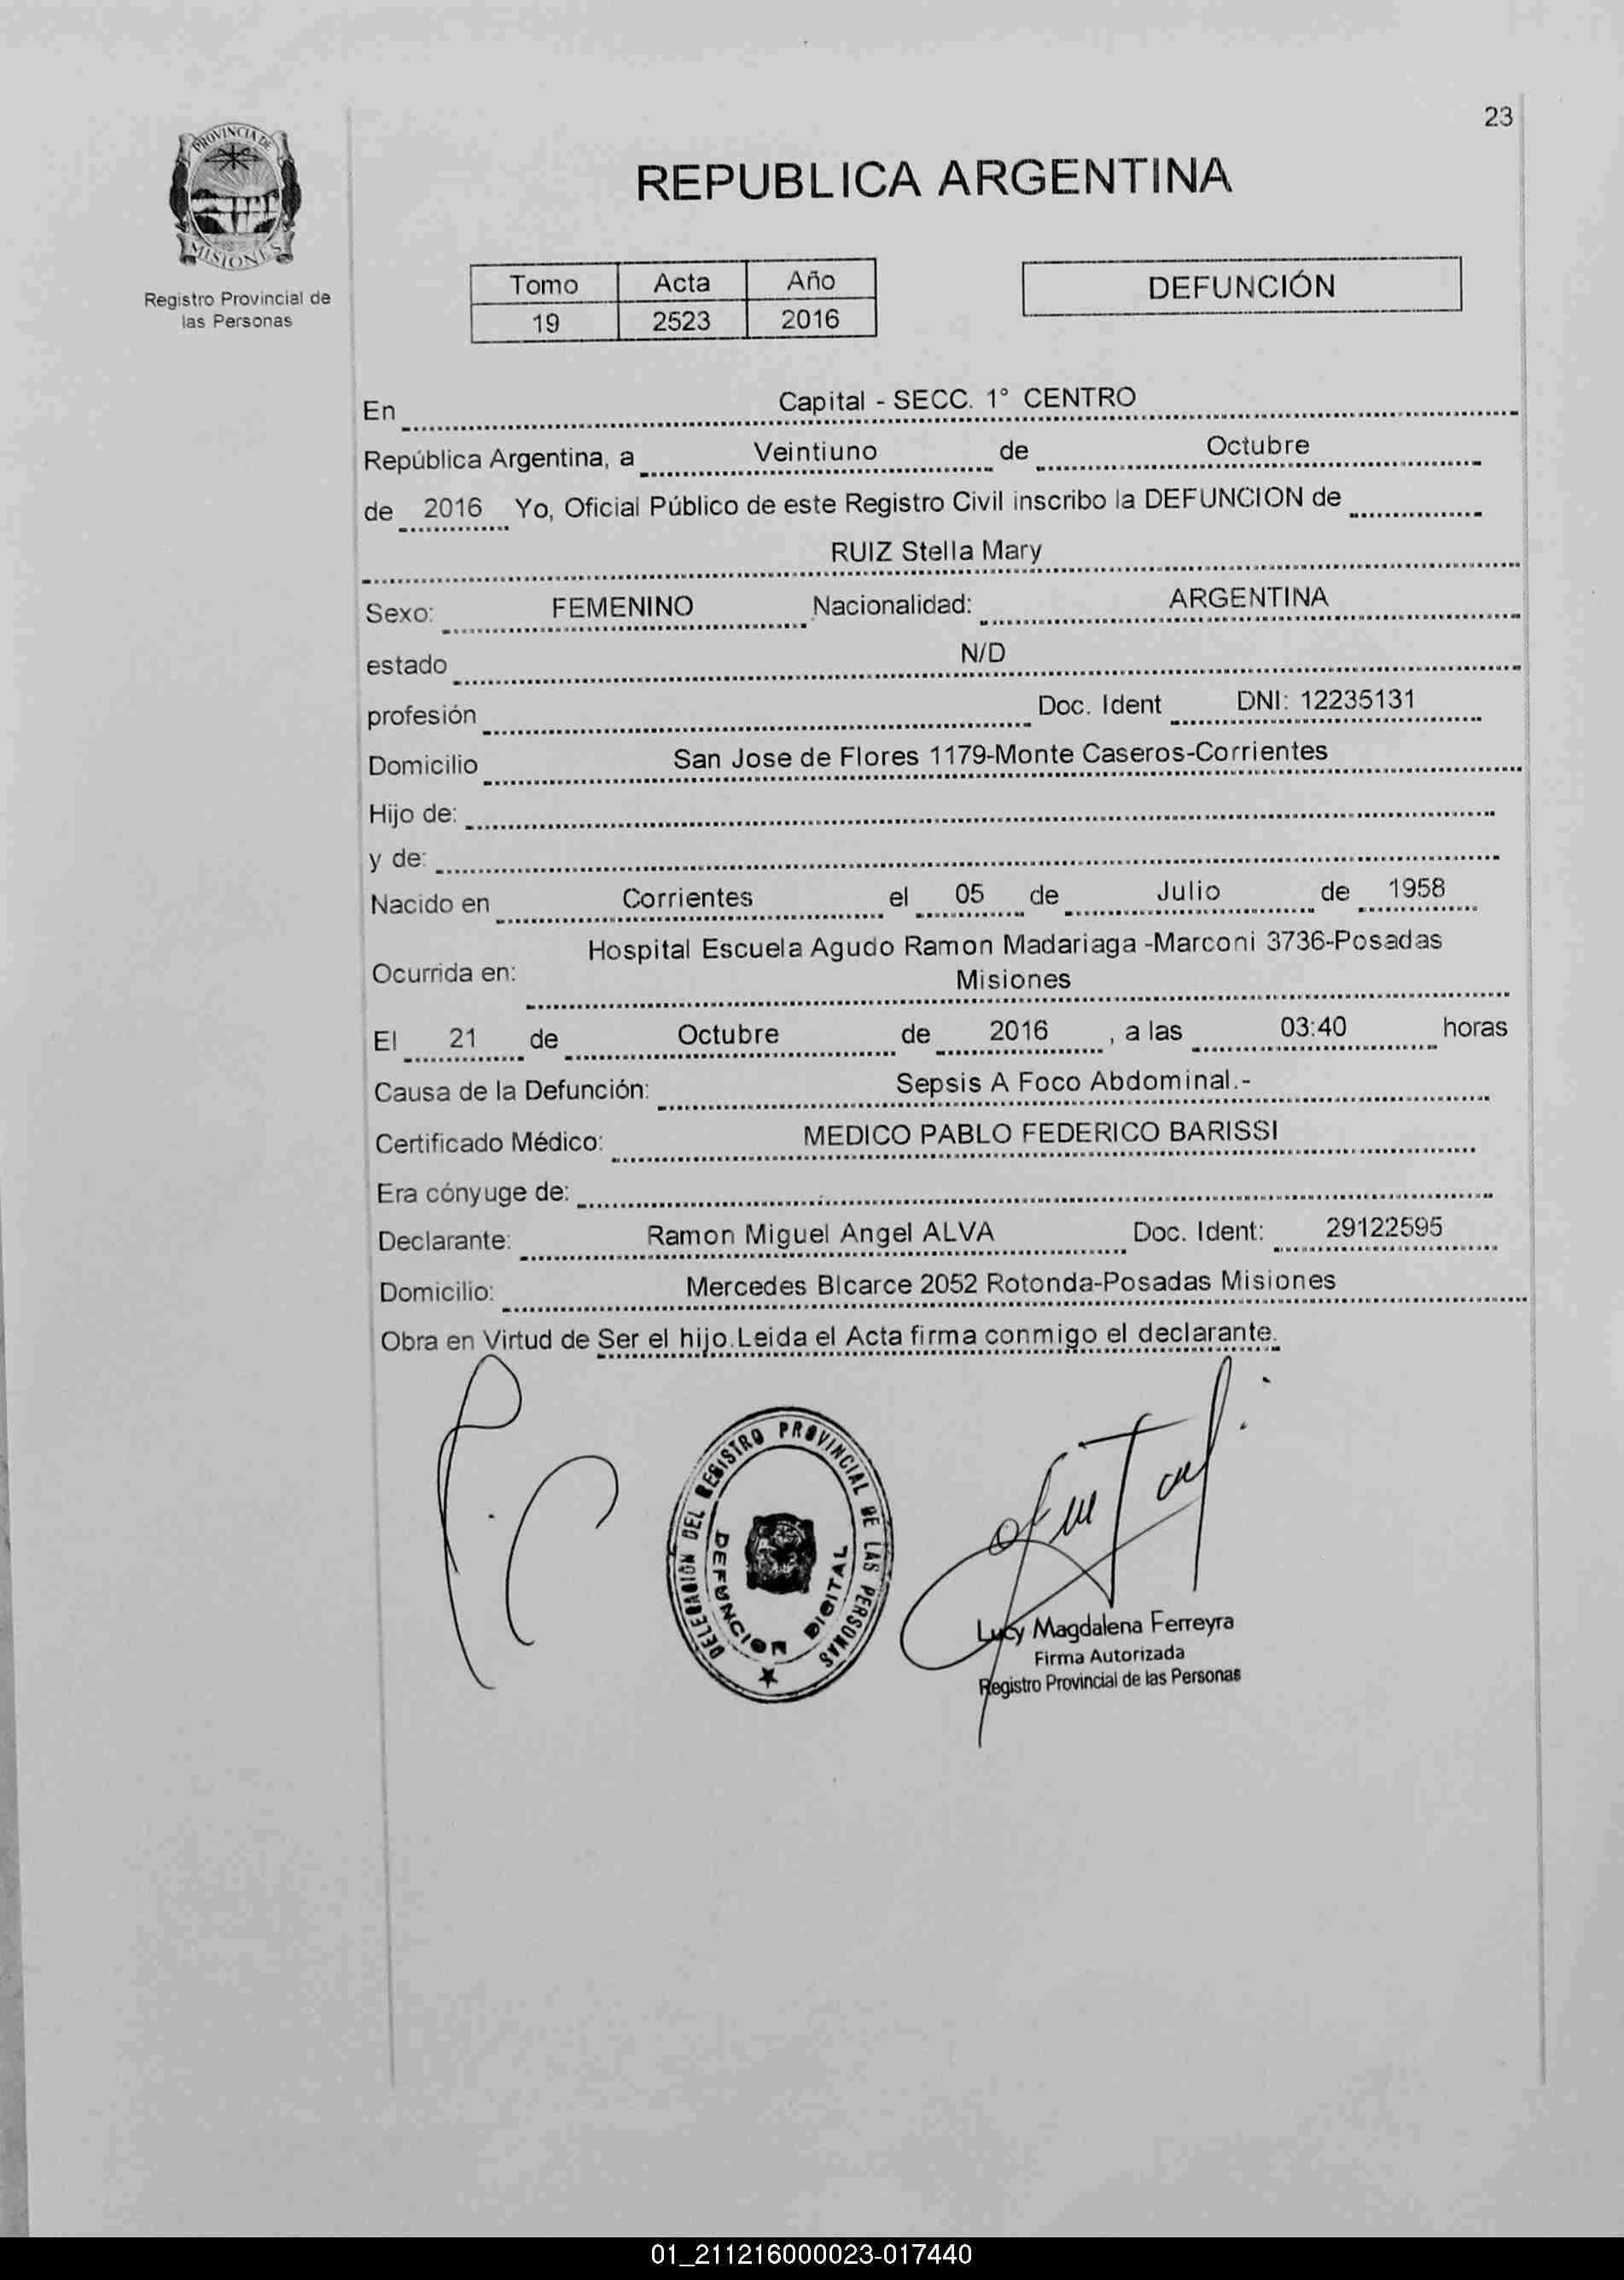 23
PROVINCIA DE
MISIONES
Registro Provincial de
las Personas
REPUBLICA ARGENTINA
Tomo Acta Año
19 2523 2016
DEFUNCIÓN
En Capital - SECC. 1° CENTRO
República Argentina, a Veintiuno de Octubre
de 2016 Yo, Oficial Público de este Registro Civil inscribo la DEFUNCION de
RUIZ Stella Mary
Sexo: FEMENINO Nacionalidad: ARGENTINA
estado N/D
profesión Doc. Ident DNI: 12235131
Domicilio San Jose de Flores 1179-Monte Caseros-Corrientes
Hijo de:
y de:
Nacido en Corrientes el 05 de Julio de 1958
Hospital Escuela Agudo Ramon Madariaga -Marconi 3736-Posadas
Ocurrida en: Misiones
El 21 de Octubre de 2016 , a las 03:40 horas
Causa de la Defunción: Sepsis A Foco Abdominal.-
Certificado Médico: MEDICO PABLO FEDERICO BARISSI
Era cónyuge de:
Declarante: Ramon Miguel Angel ALVA Doc. Ident: 29122595
Domicilio: Mercedes Blcarce 2052 Rotonda-Posadas Misiones
Obra en Virtud de Ser el hijo.Leida el Acta firma conmigo el declarante.
DELEGACION DEL REGISTRO PROVINCIAL DE LAS PERSONAS
DEFUNCION DIGITAL
Lucy Magdalena Ferreyra
Firma Autorizada
Registro Provincial de las Personas
01_211216000023-017440